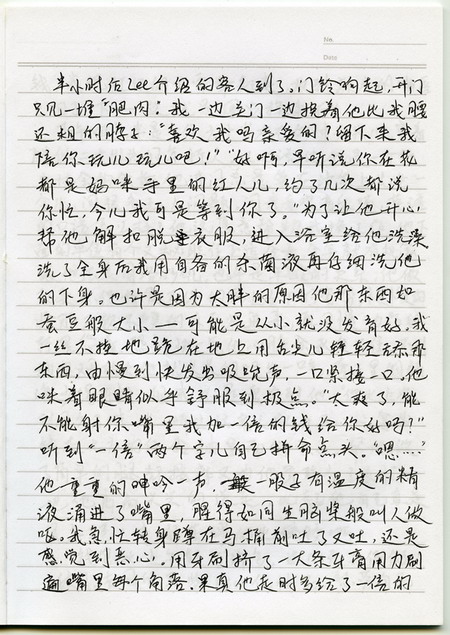 No.
Date
半小时后Lee介绍的客人到了。门铃响起，开门
只见一堆“肥肉”：我一边关门一边搂着他比我腰
还粗的脖子：“喜欢我吗亲爱的？留下来我
陪你玩儿玩儿吧！”“好啊，早听说你在花
都是妈咪手里的红人儿，约了几次都说
你忙，今儿我可是等到你了。”为了让他开心
帮他解扣脱衣服，进入浴室给他洗澡
洗了全身后我用自备的杀菌液再仔细洗他
的下身。也许是因为太胖的原因他那东西如
蚕豆般大小——可能是从小就没发育好，我
一丝不挂地跪在地上用舌尖儿轻轻舔那
东西，由慢到快发出吸吮声，一口紧接一口。他
眯着眼睛似乎舒服到极点。“太爽了，能
不能射你嘴里我加一倍的钱给你好吗？”
听到“一倍”两个字儿自己拼命点头。“嗯……”
他重重的呻吟一声，一股子有温度的精
液涌进了嘴里，腥得如同生脑浆般叫人做
呕。我急忙转身蹲在马桶前吐了又吐，还是
感觉到恶心。用牙刷挤了一大条牙膏用力刷
遍嘴里每个角落。果真他走时多给了一倍的